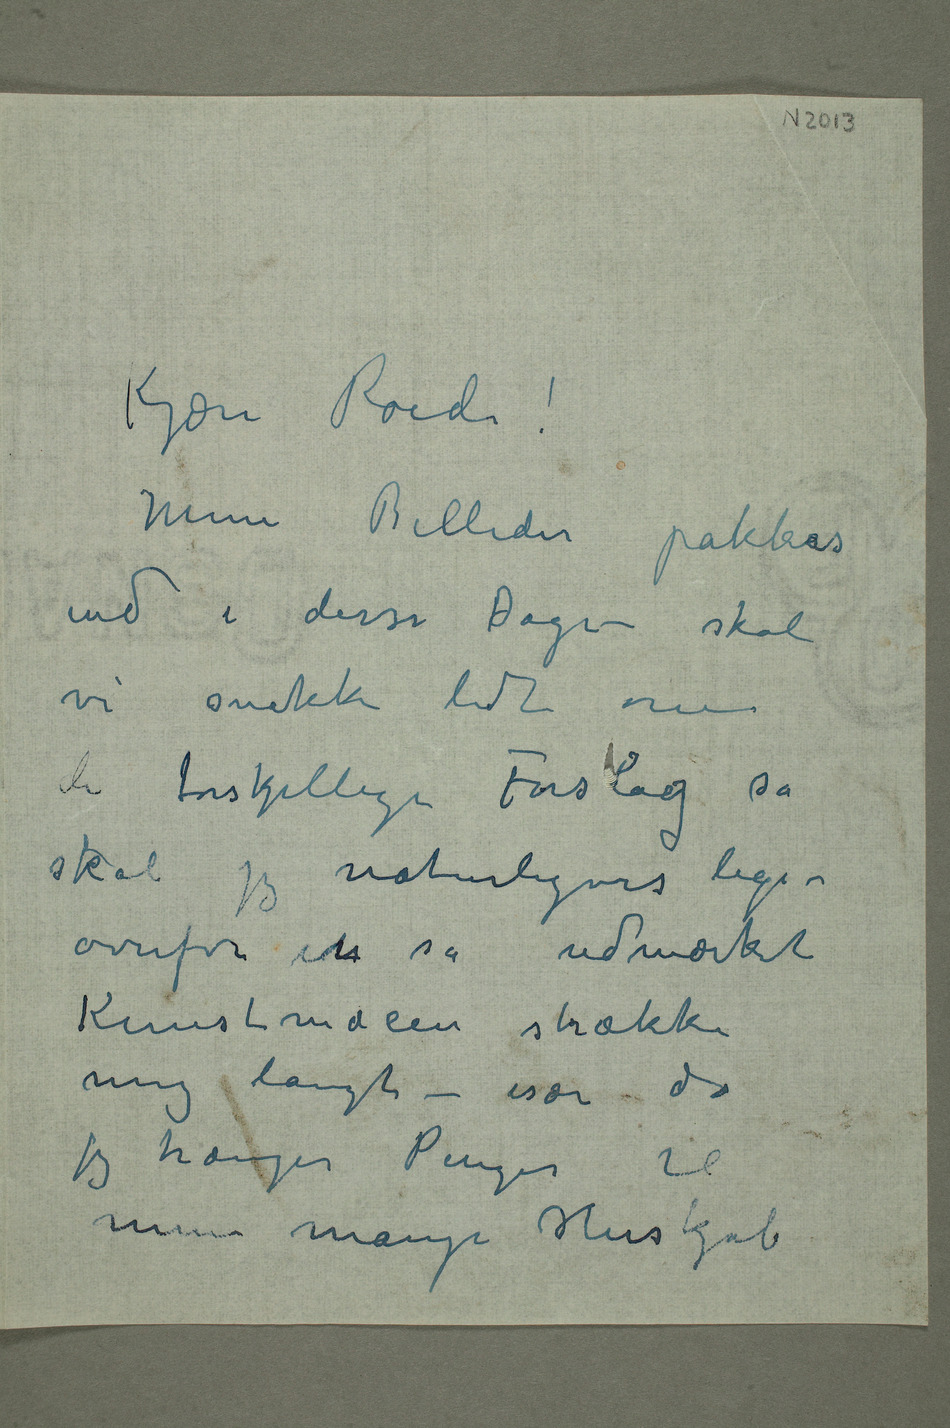 N 2013
Kjære Roede!
Mine Billeder pakkes
ind i disse Dage – skal
vi snakke lidt om
de forskjellige Forslag så
skal jeg naturligvis lige-
overfor en så udmærket
Kunstmæcen strække
mig langt – især da
jeg trænger Penger til
mine mange Huskjøb